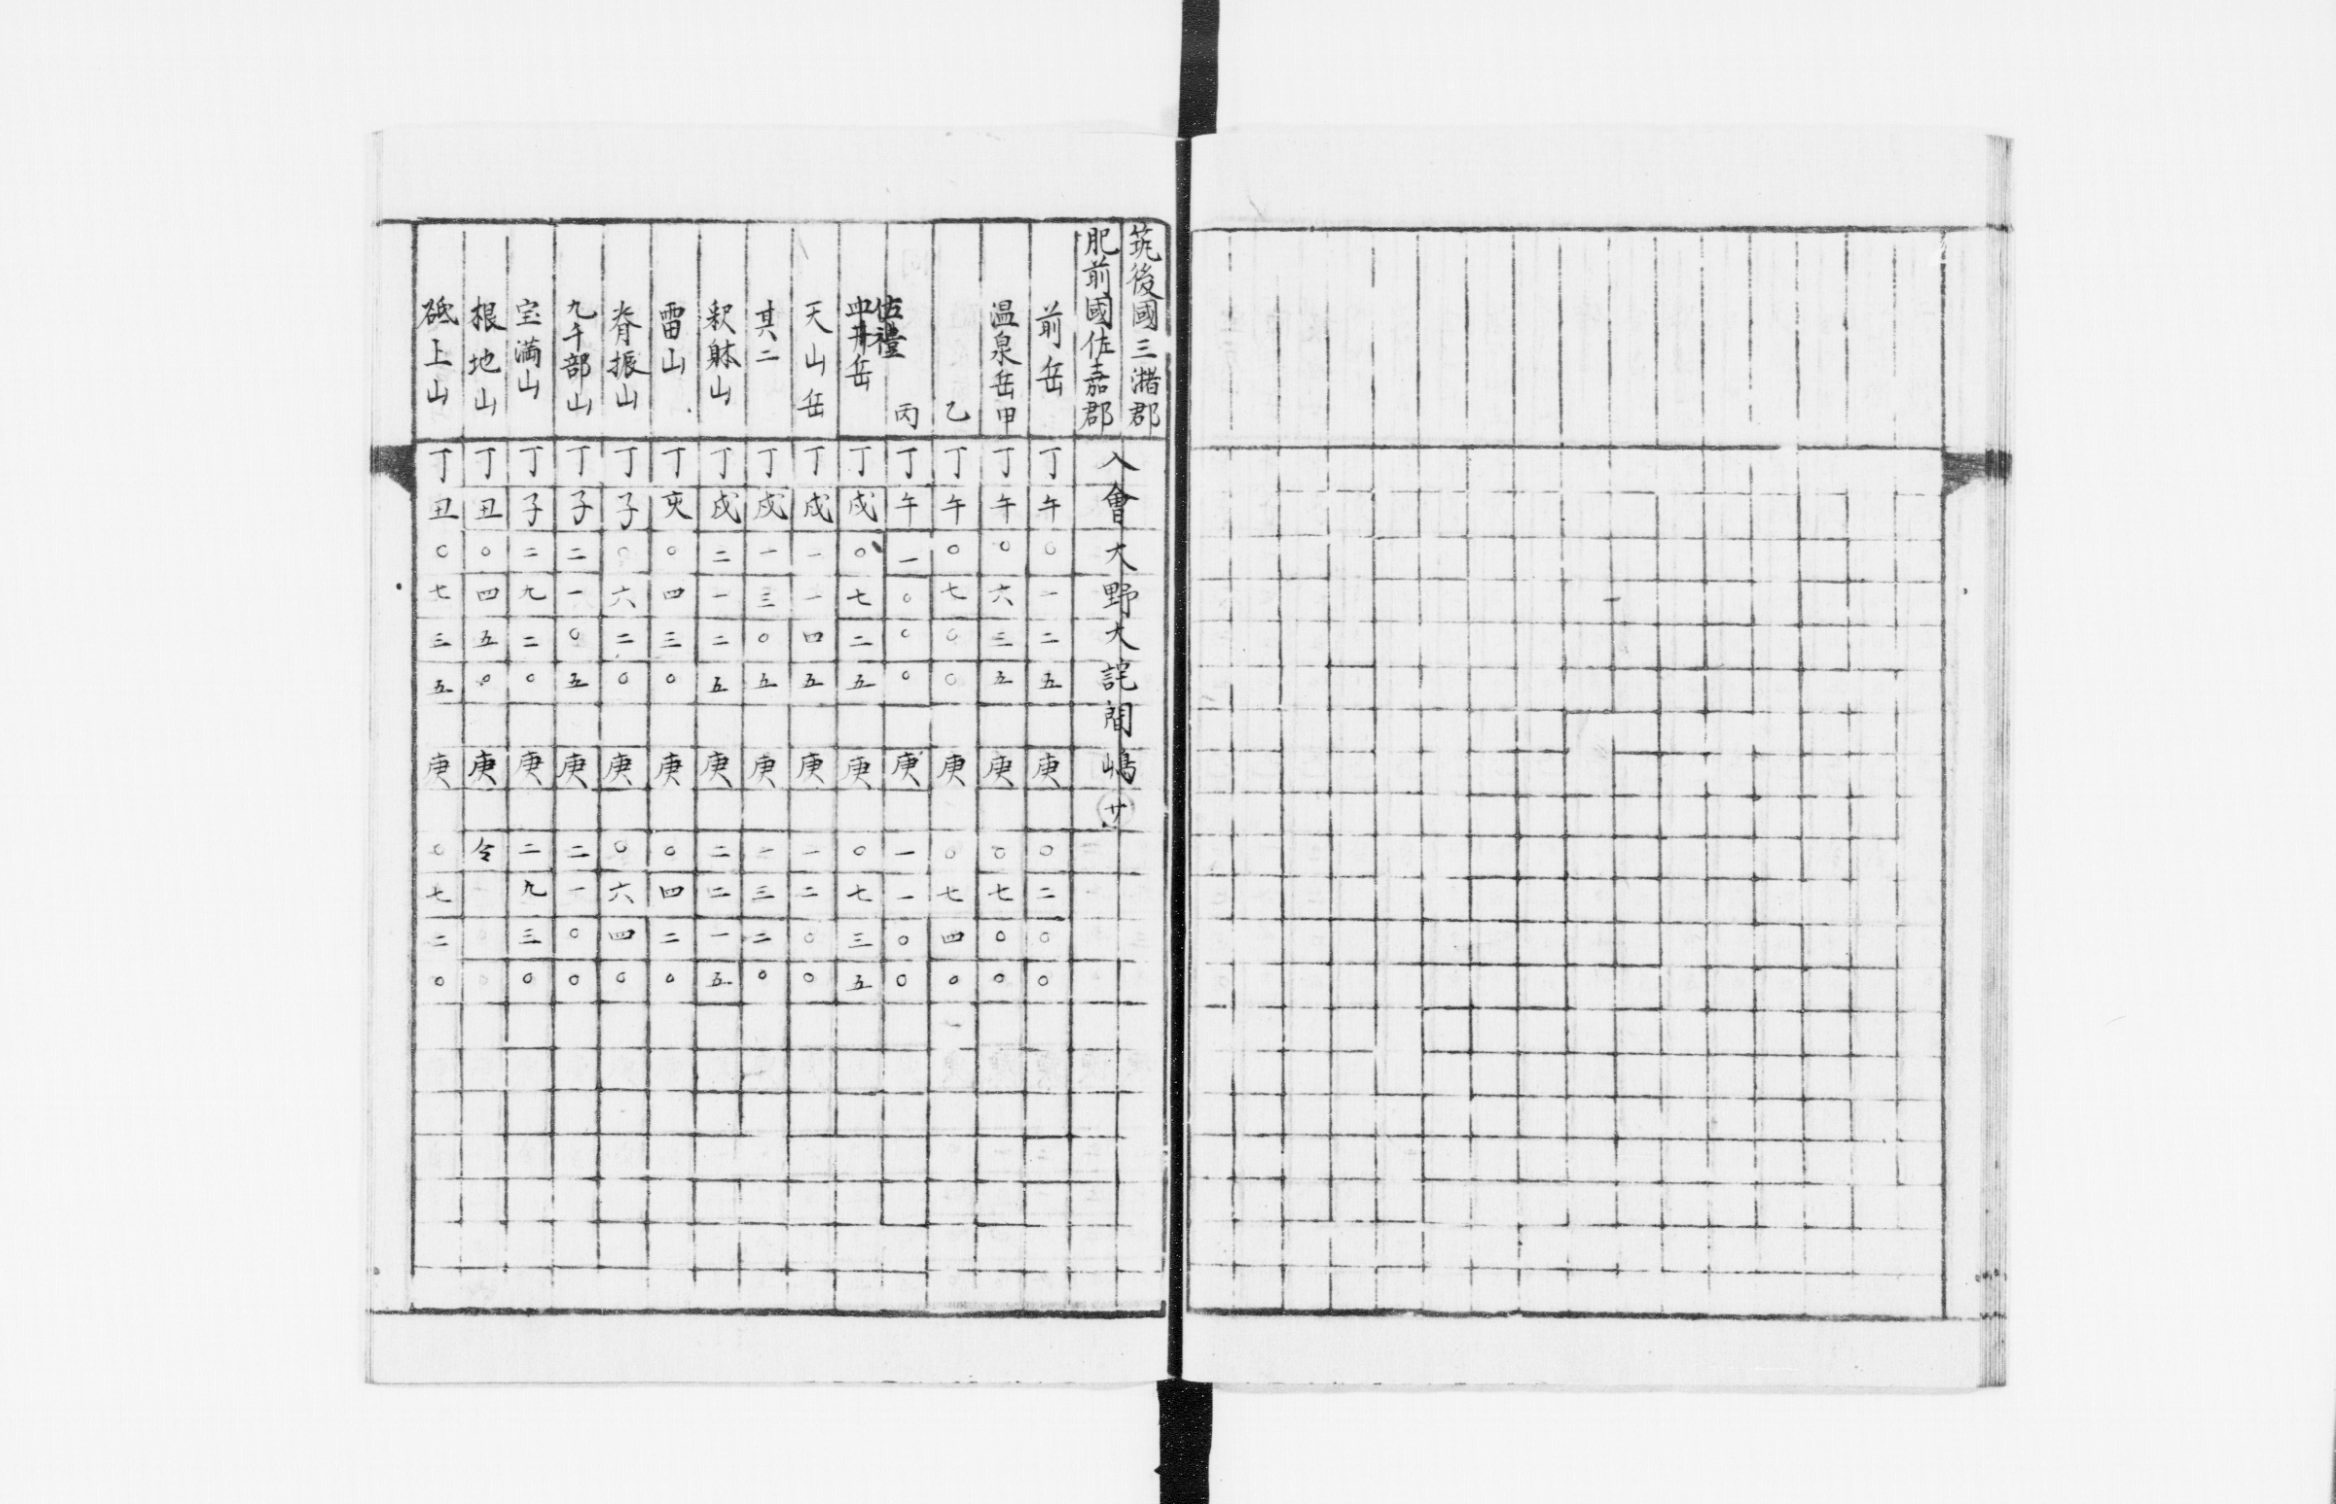 筑後國三潴郡
肥前國佐嘉郡
入會大野大詫間嶋廿
前岳 丁午〇一二五 庚〇二〇〇
温泉岳甲 丁午〇六三五 庚〇七〇〇
乙 丁午〇七〇〇 庚〇七四〇
丙 丁午一〇〇〇 庚一一〇〇
佐禮
岳 丁戌〇七二五 庚〇七三五
天山岳 丁戌一一四五 庚一二〇〇
其二 丁戌一三〇五 庚一三二〇
釈躰山 丁戌二一二五 庚二二一五
雷山 丁亥〇四三〇 庚〇四二〇
脊振山 丁子〇六二〇 庚〇六四〇
九千部山 丁子二一〇五 庚二一〇〇
宝満山 丁子二九二〇 庚二九三〇
根地山 丁丑〇四五〇 庚令
砥上山 丁丑〇七三五 庚〇七二〇